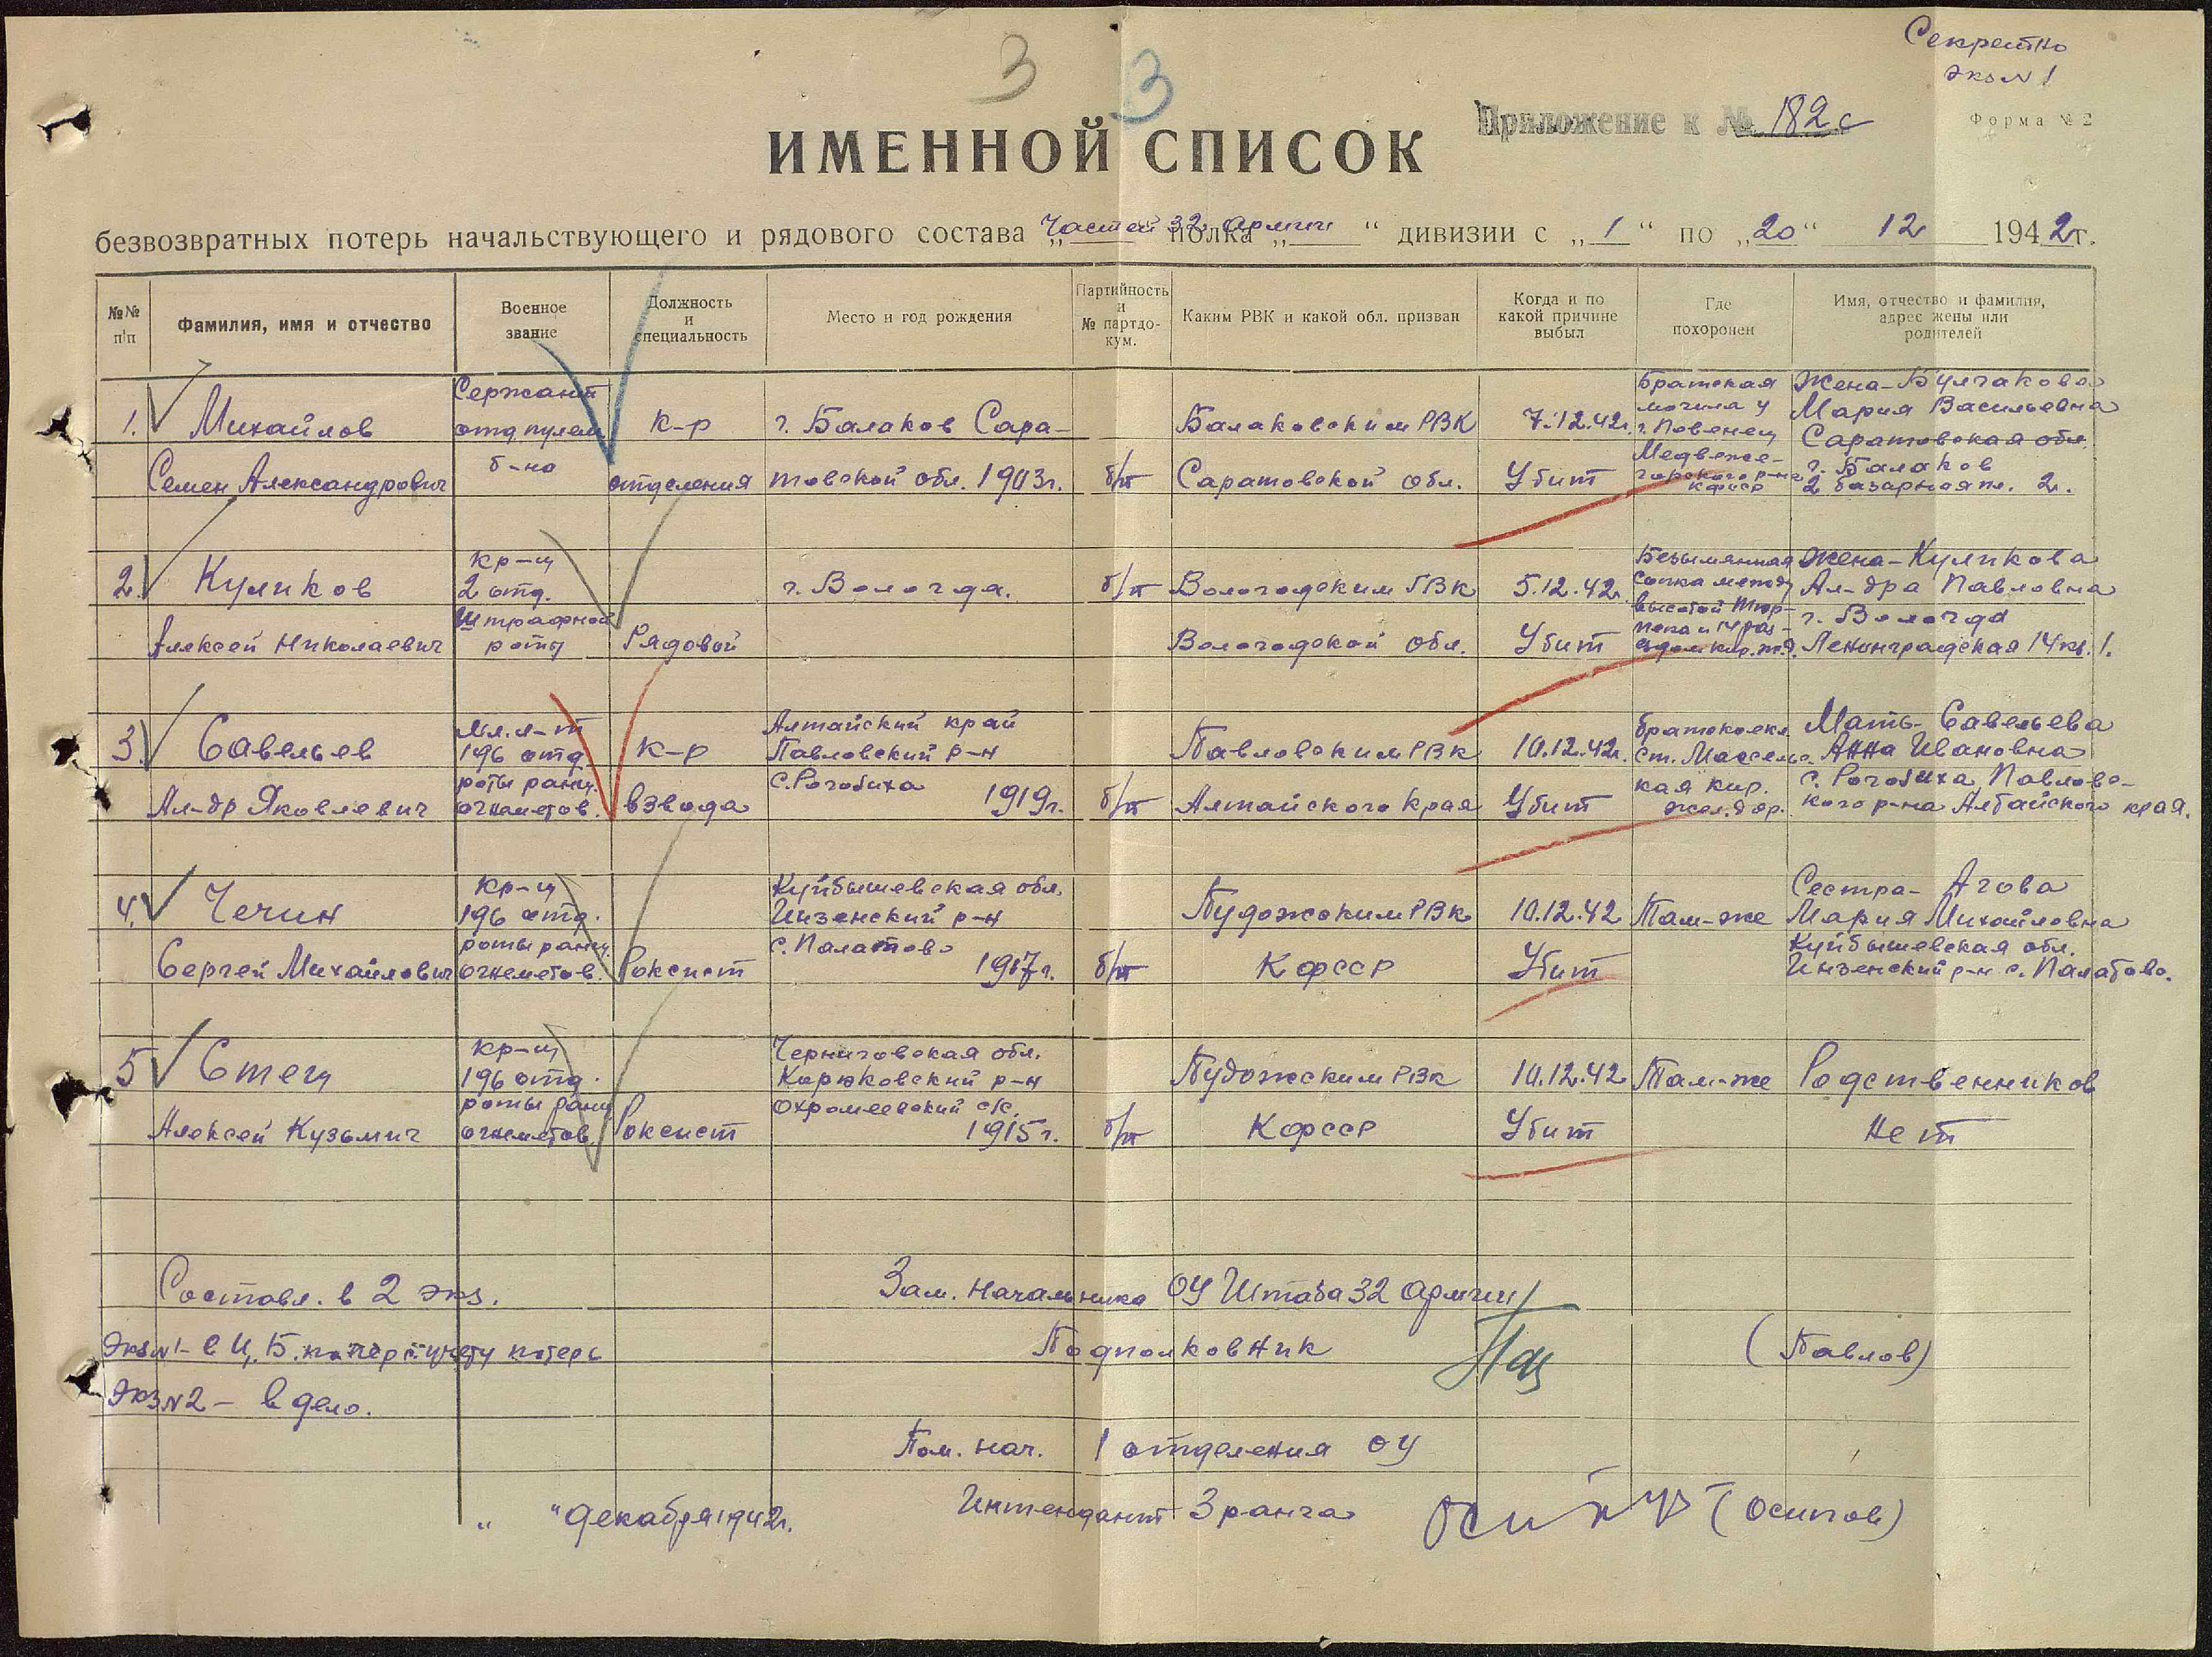 Секретно
экз № 1
3 3
Приложение к № 182с
Форма № 2
ИМЕННОЙ СПИСОК
безвозвратных потерь начальствующего и рядового состава „Частей 32 Армии полка „ “ дивизии с „1“ по „20“ 12 1942г.
№№ п/п
Фамилия, имя и отчество
Военное звание
Должность и специальность
Место и год рождения
Партийность и № партдокум.
Каким РВК и какой обл. призван
Когда и по какой причине выбыл
Где похоронен
Имя, отчество и фамилия, адрес жены или родителей
1.
Михайлов
Семен Александрович
Сержант
отд пулем
б-на
к-р
отделения
г. Балаков Сара-
товской обл. 1903г.
б/п
Балаковским РВК
Саратовской обл.
7.12.42г.
Убит
Братская
могила у
г. Повенец
Медвеже-
горского р-на
КФССР
Жена-Булгакова
Мария Васильевна
Саратовская обл.
г. Балаков
2 базарная пл. 2.
2.
Куликов
Алексей Николаевич
Кр-ц
2 отд.
Штрафной
роты
Рядовой
г. Вологда.
б/п
Вологодским ГВК
Вологодской обл.
5.12.42г.
Убит
Безымянная
сопка между
высотой
Жена-Куликова
Ал-дра Павловна
г. Вологда
Ленинградская 14 кв. 1.
3.
Савельев
Ал-др Яковлевич
Мл. л-т
196 отд.
роты ранц.
огнеметов.
к-р
взвода
Алтайский край
Павловский р-н
с. Рогозиха
1919г.
б/п
Павловским РВК
Алтайского края
10.12.42г.
Убит
ст. Массельс-
кая Кир.
жел. дор.
Мать-Савельева
Анна Ивановна
с. Рогозиха Павловс-
кого р-на Алтайского края.
4.
Чечин
Сергей Михайлович
Кр-ц
196 отд.
роты ранц.
огнеметов.
Роксист
Куйбышевская обл.
Инзенский р-н
с. Палатово
1917г.
б/п
Пудожским РВК
КФССР
10.12.42
Убит
Там-же
Сестра- Агова
Мария Михайловна
Куйбышевская обл.
Инзенский р-н с. Палатово.
5
Стец
Алексей Кузьмич
Кр-ц
196 отд.
роты ранц
огнеметов.
Роксист
Черниговская обл.
Корюковский р-н
Охромеевский с/с.
1915г.
б/п
Пудожским РВК
КФССР
10.12.42
Убит
Там-же
Родственников
Нет
Составл. в 2 экз.
Экз № 1- в Ц. Б. по учету потерь
Экз № 2 - в дело.
Зам. Начальника ОУ Штаба 32 Армии
Подполковник (Павлов)
Пом. нач. 1 отделения ОУ
„ “ декабря 1942г.
Интендант 3 ранга (Осипов)